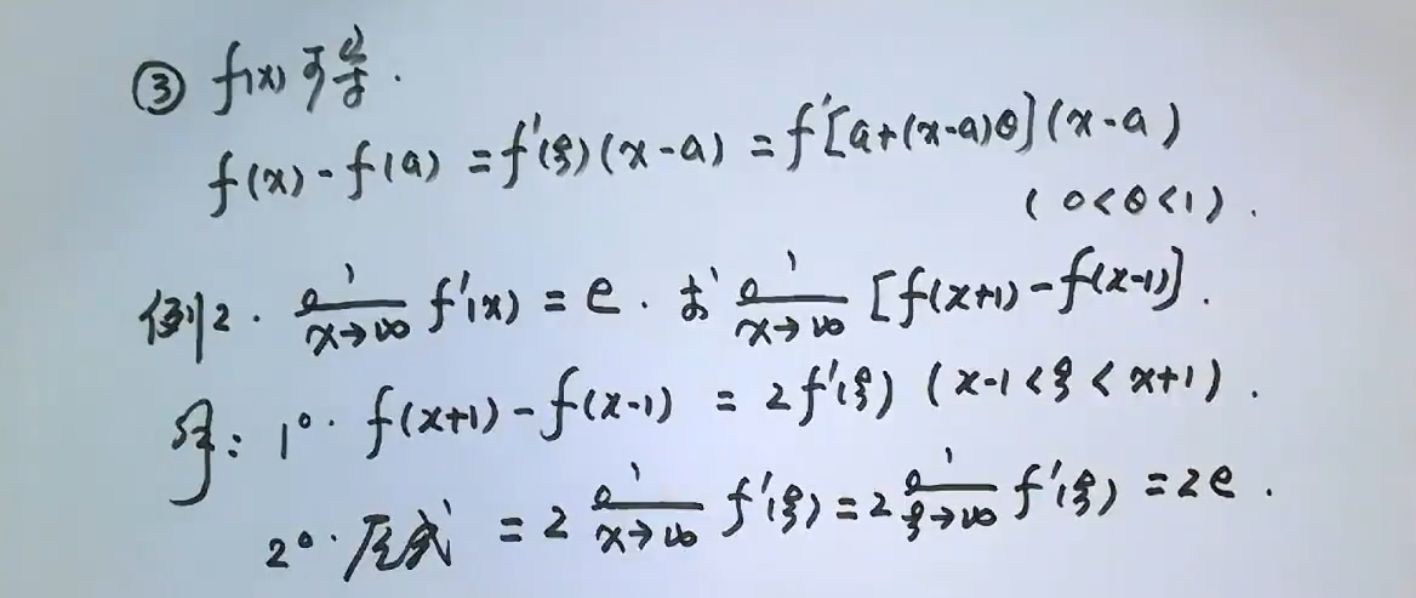 ③ f(x)可导.
f(x)-f(a)=f'(ξ)(x-a)=f'[a+(x-a)θ](x-a)
(0<θ<1).
例2. lim x→∞ f'(x)=e. 求 lim x→∞ [f(x+1)-f(x-1)].
解: 1°. f(x+1)-f(x-1)=2f'(ξ) (x-1<ξ<x+1).
2°. 原式=2 lim x→∞ f'(ξ)=2 lim ξ→∞ f'(ξ)=2e.